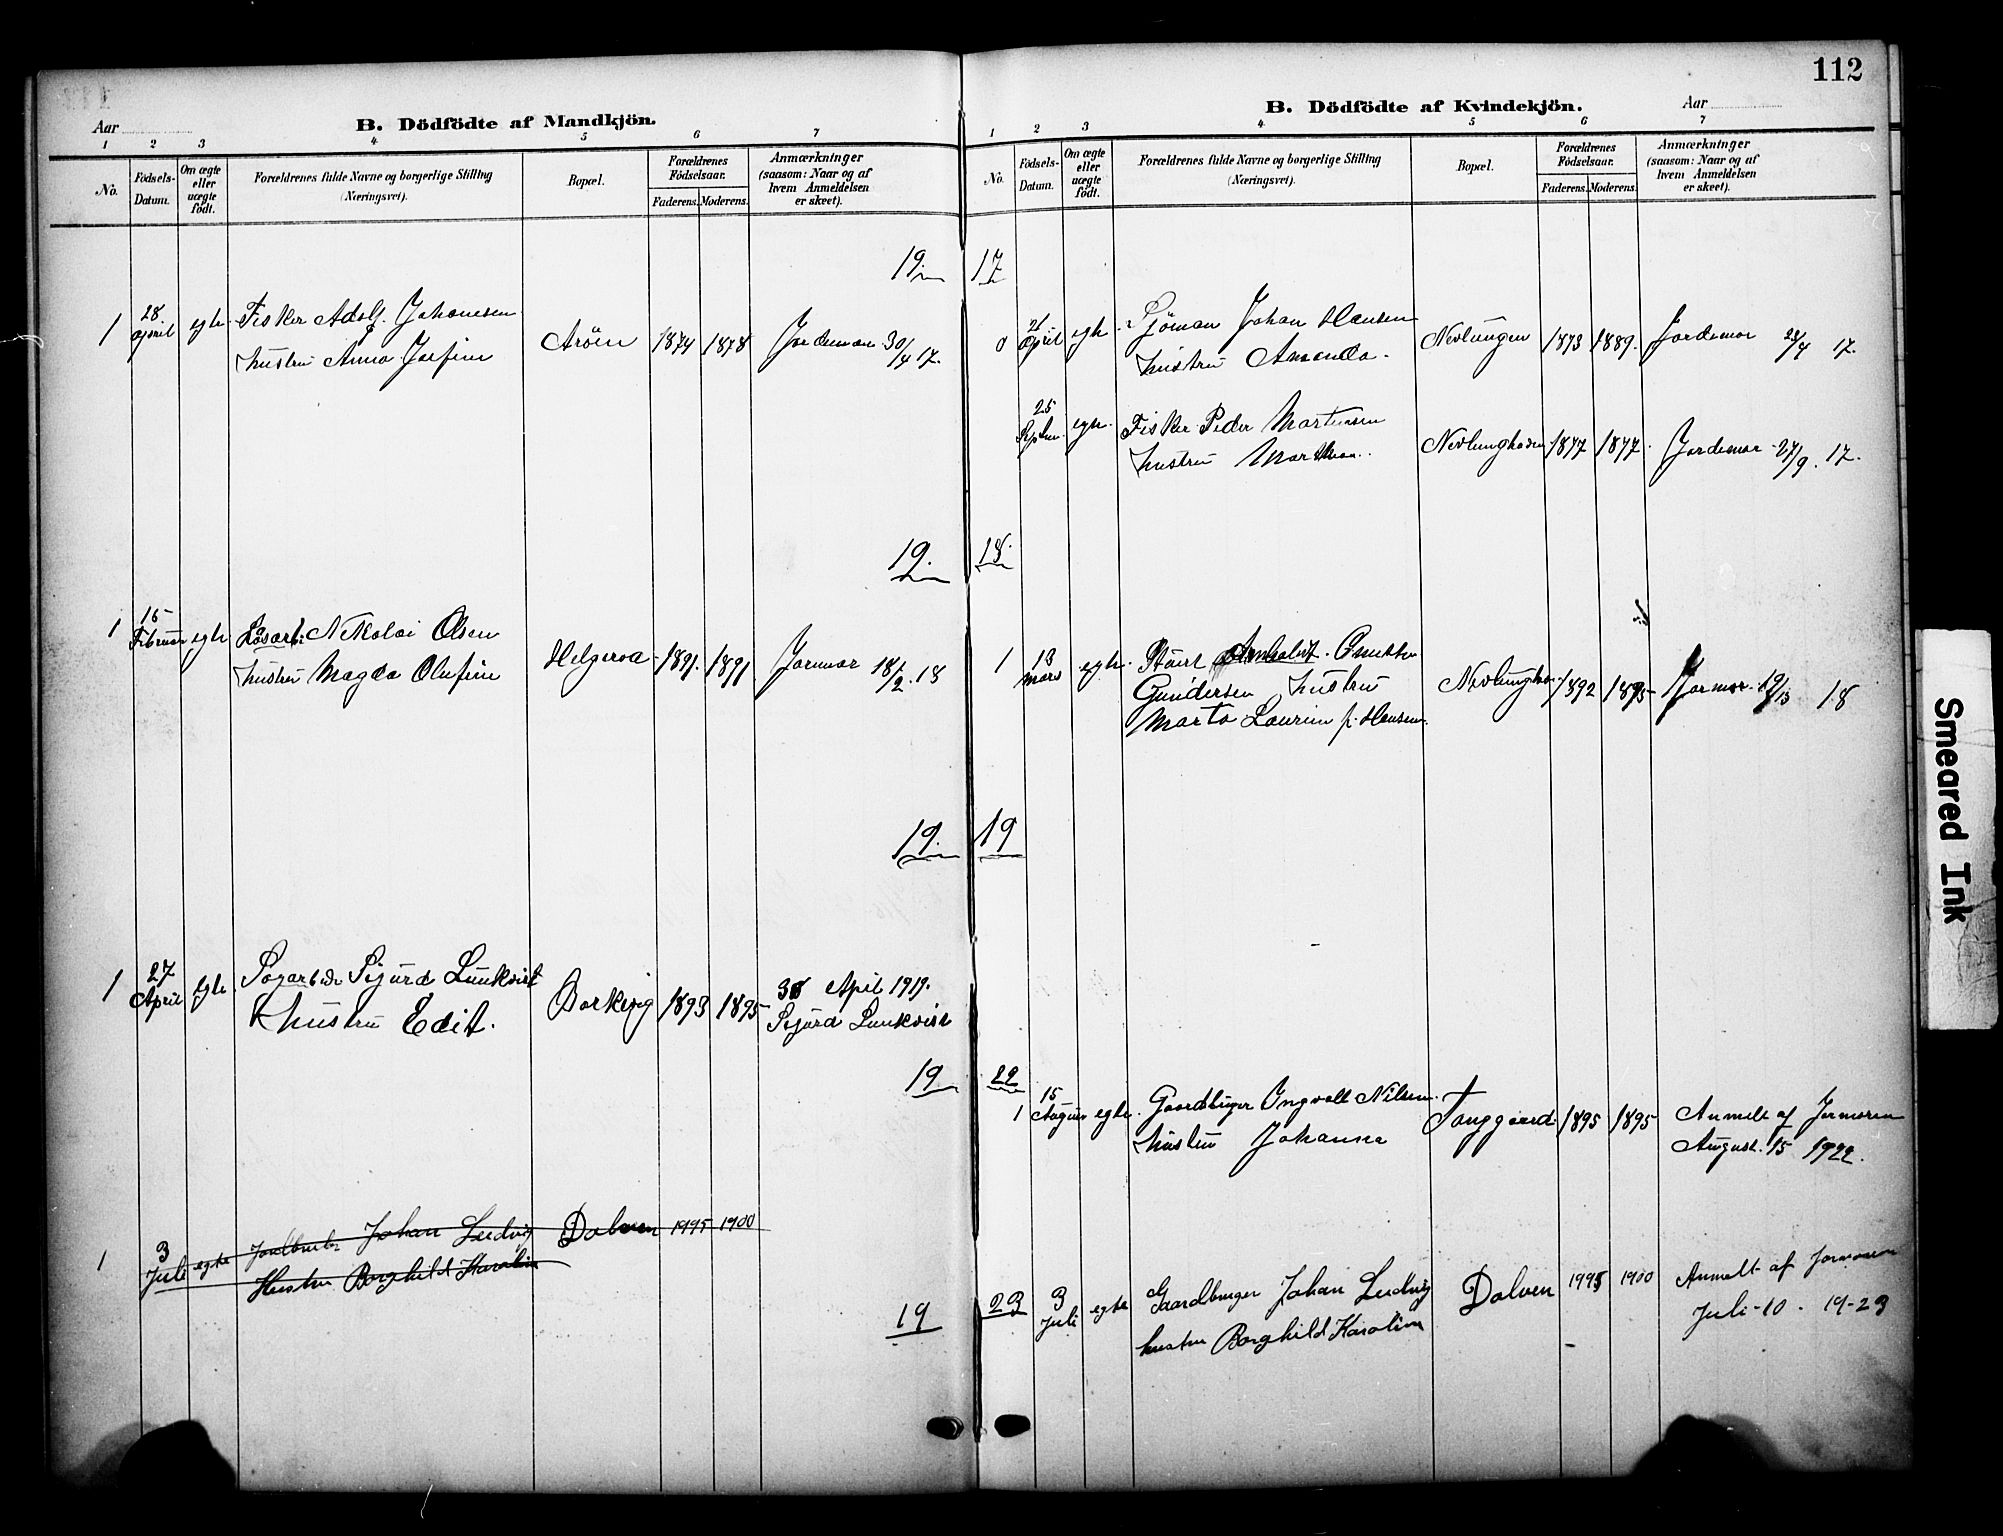 112
Aar
B. Dödfödte af Mandkjön.
1 2 3 4 5 6 7
No.
Födsels-Datum.
Om ægte eller uægte födt.
Forældrenes fulde Navne og borgerlige Stilling
(Næringsvei).
Bopæl.
Forældrenes Födselsaar.
Faderens. Moderens.
Anmærkninger
(saasom: Naar og af
hvem Anmeldelsen
er skeet).
19
1 28 april egte Fisker Adolf Johanesen
hustru Anna Josefine
Aröen 1874 1878 Jordemor 30/4 17.
19.
1 15 Februar egte Løsarb: Nikolai Olsen
hustru Magda Olufine
Helgeroa 1891. 1891 Jormor 18/2 18
19.
1 27 April egte Sigurd Lunkvist
hustru Edit.
Barkevig 1893 1895
30 April 1919.
Sigurd Lunkvist
19
1 3 Juli egte Johan Ludvig
Hustru Borghild Karoline
Dolven 1995 1900
19
B. Dödfödte af Kvindekjön.
Aar
1 2 3 4 5 6 7
No.
Födsels-Datum.
Om ægte eller uægte födt.
Forældrenes fulde Navne og borgerlige Stilling
(Næringsvei).
Bopæl.
Forældrenes Födselsaar.
Faderens. Moderens.
Anmærkninger
(saasom: Naar og af
hvem Anmeldelsen
er skeet).
17
21 april egte Sjöman Johan Hansen
hustru Amanda.
Nevlungen 1873 1889. Jordemor 17.
25 Septem. egte. Fisker Peder Martinsen
hustru
Nevlunghavn 1877 1877. Jordemor 27/9. 17.
18.
1 13 mars egte.
Gundersen hustru
Marta Laurine f. Hansen.
1892 1895 Jormor 18
19
22
1 15 August egte. Gaardbruger Ingvald Nilsen.
hustru Johanne
1895 1895
Anmelt af Jormoren
August. 15 1922.
23
3 Juli egte Gaardbruger Johan Ludvig
hustru Borghild Karoline
Dolven 1995 1900
Anmelt af Jormoren
Juli-10. 19-23
Smeared Ink